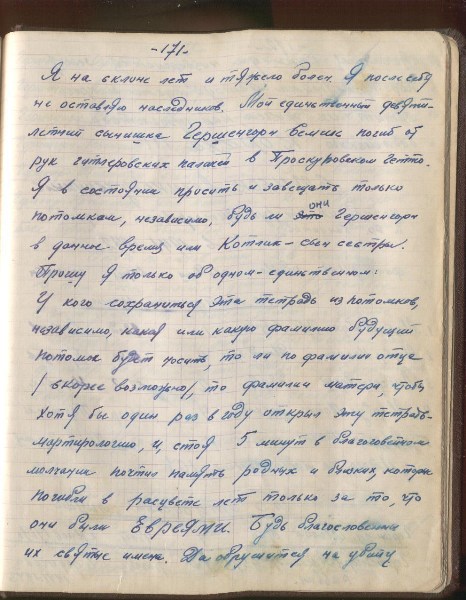 -171-
Я на склоне лет и тяжело болен. Я после себя
не оставляю наследников. Мой единственный девяти-
летний сынишка Гершенгорн Бемиш погиб от
рук гитлеровских палачей в Проскуровском гетто.
Я в состоянии просить и завещать только
потомкам, независимо, будь ли они Гершенгорн
в данное время или Котлик - сын сестры.
Прошу я только об одном-единственном:
У кого сохраниться эта тетрадь из потомков,
независимо, какой или какую фамилию будущий
потомок будет носить, то ли по фамилии отца
/скорее возможно/, то фамилии матери, чтобы
хотя бы один раз в году открыл эту тетрадь-
мартирологию, и, стоя 5 минут в благоговейном
молчании почтил память родных и близких, которые
погибли в расцвете лет только за то, что
они были Евреями. Будь благословенны
их святые имена. Да обрушится на убийц